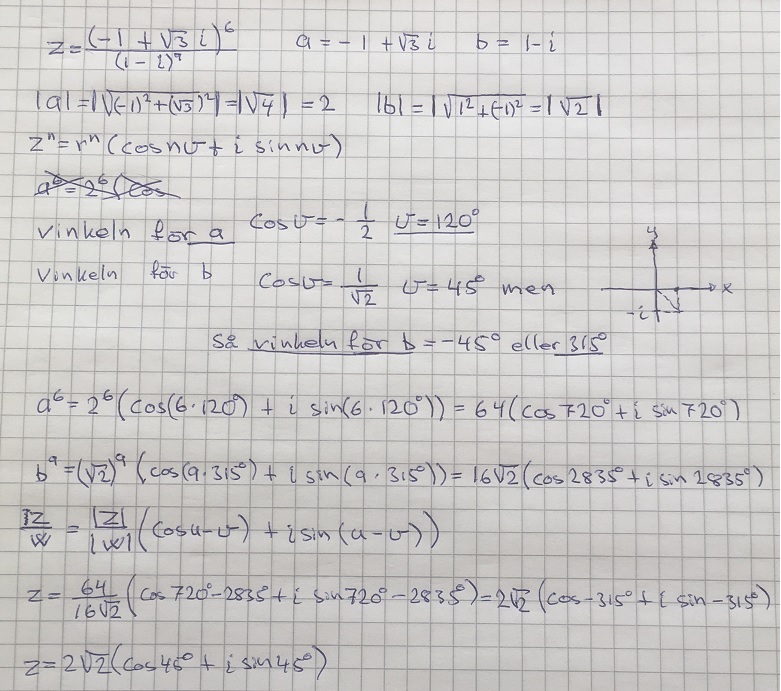 z = (-1 + √3 i)^6 / (1 - i)^9    a = -1 + √3 i    b = 1 - i
|a| = |√((-1)² + (√3)²)| = |√4| = 2    |b| = |√(1² + (-1)²) = |√2|
z^n = r^n (cos nv + i sin nv)
a^6 = 2^6 (cos
vinkeln för a    cos v = -1/2    v = 120°
vinkeln för b    cos v = 1/√2    v = 45° men
y
x
-i
så vinkeln för b = -45° eller 315°
a^6 = 2^6 (cos(6·120°) + i sin(6·120°)) = 64(cos 720° + i sin 720°)
b^9 = (√2)^9 (cos(9·315°) + i sin(9·315°)) = 16√2 (cos 2835° + i sin 2835°)
z/w = |z|/|w| (cos u-v) + i sin(u-v))
z = 64/16√2 (cos 720° - 2835° + i sin 720° - 2835°) = 2√2 (cos -315° + i sin -315°)
z = 2√2 (cos 45° + i sin 45°)